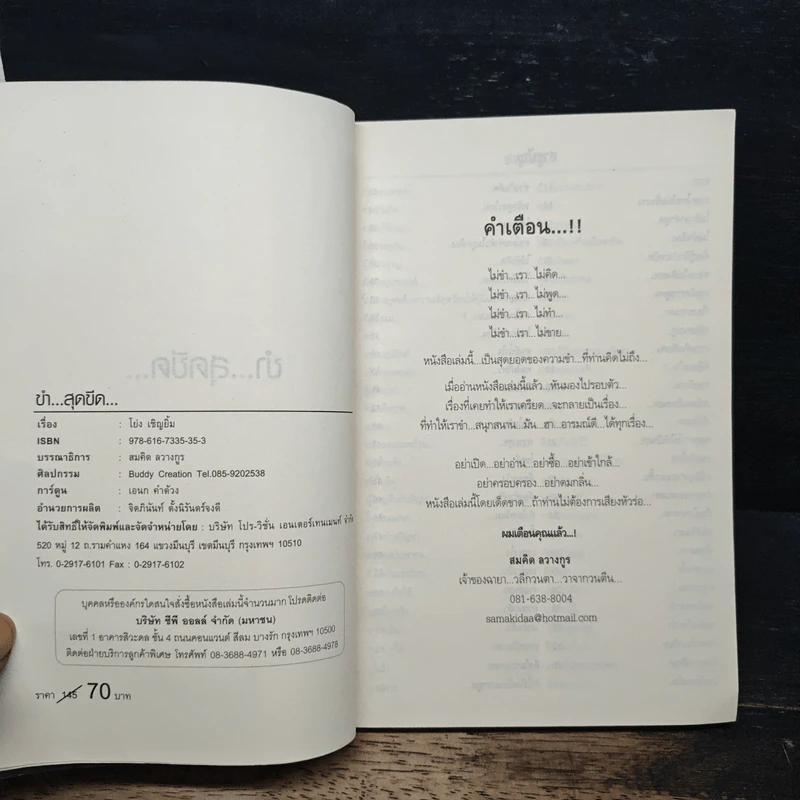 ขำ...สุดขีด...
เรื่อง : โย่ง เชิญยิ้ม
ISBN : 978-616-7335-35-3
บรรณาธิการ : สมคิด ลวางกูร
ศิลปกรรม : Buddy Creation Tel.085-9202538
การ์ตูน : เอนก คำด้วง
อำนวยการผลิต : จิตภินันท์ ตั้งนิรันดร์จงดี
ได้รับสิทธิ์ให้จัดพิมพ์และจัดจำหน่ายโดย : บริษัท โปร-วิชั่น เอนเตอร์เทนเมนท์ จำกัด
520 หมู่ 12 ถ.รามคำแหง 164 แขวงมีนบุรี เขตมีนบุรี กรุงเทพฯ 10510
โทร. 0-2917-6101 Fax : 0-2917-6102
บุคคลหรือองค์กรใดสนใจสั่งซื้อหนังสือเล่มนี้จำนวนมาก โปรดติดต่อ
บริษัท ซีพี ออลล์ จำกัด (มหาชน)
เลขที่ 1 อาคารสิวะดล ชั้น 4 ถนนคอนแวนต์ สีลม บางรัก กรุงเทพฯ 10500
ติดต่อฝ่ายบริการลูกค้าพิเศษ โทรศัพท์ 08-3688-4971 หรือ 08-3688-4978
ราคา 145 70 บาท
คำเตือน...!!
ไม่ขำ...เรา...ไม่คิด...
ไม่ขำ...เรา...ไม่พูด...
ไม่ขำ...เรา...ไม่ทำ...
ไม่ขำ...เรา...ไม่ขาย...
หนังสือเล่มนี้...เป็นสุดยอดของความขำ...ที่ท่านคิดไม่ถึง...
เมื่ออ่านหนังสือเล่มนี้แล้ว...หันมองไปรอบตัว...
เรื่องที่เคยทำให้เราเครียด...จะกลายเป็นเรื่อง...
ที่ทำให้เราขำ...สนุกสนาน...มัน...ฮา...อารมณ์ดี...ได้ทุกเรื่อง...
อย่าเปิด...อย่าอ่าน...อย่าซื้อ...อย่าเข้าใกล้...
อย่าครอบครอง...อย่าดมกลิ่น...
หนังสือเล่มนี้โดยเด็ดขาด...ถ้าท่านไม่ต้องการเสียงหัวร่อ...
ผมเตือนคุณแล้ว...!
สมคิด ลวางกูร
เจ้าของฉายา...วลีกวนตา...วาจากวนตีน...
081-638-8004
samakidaa@hotmail.com